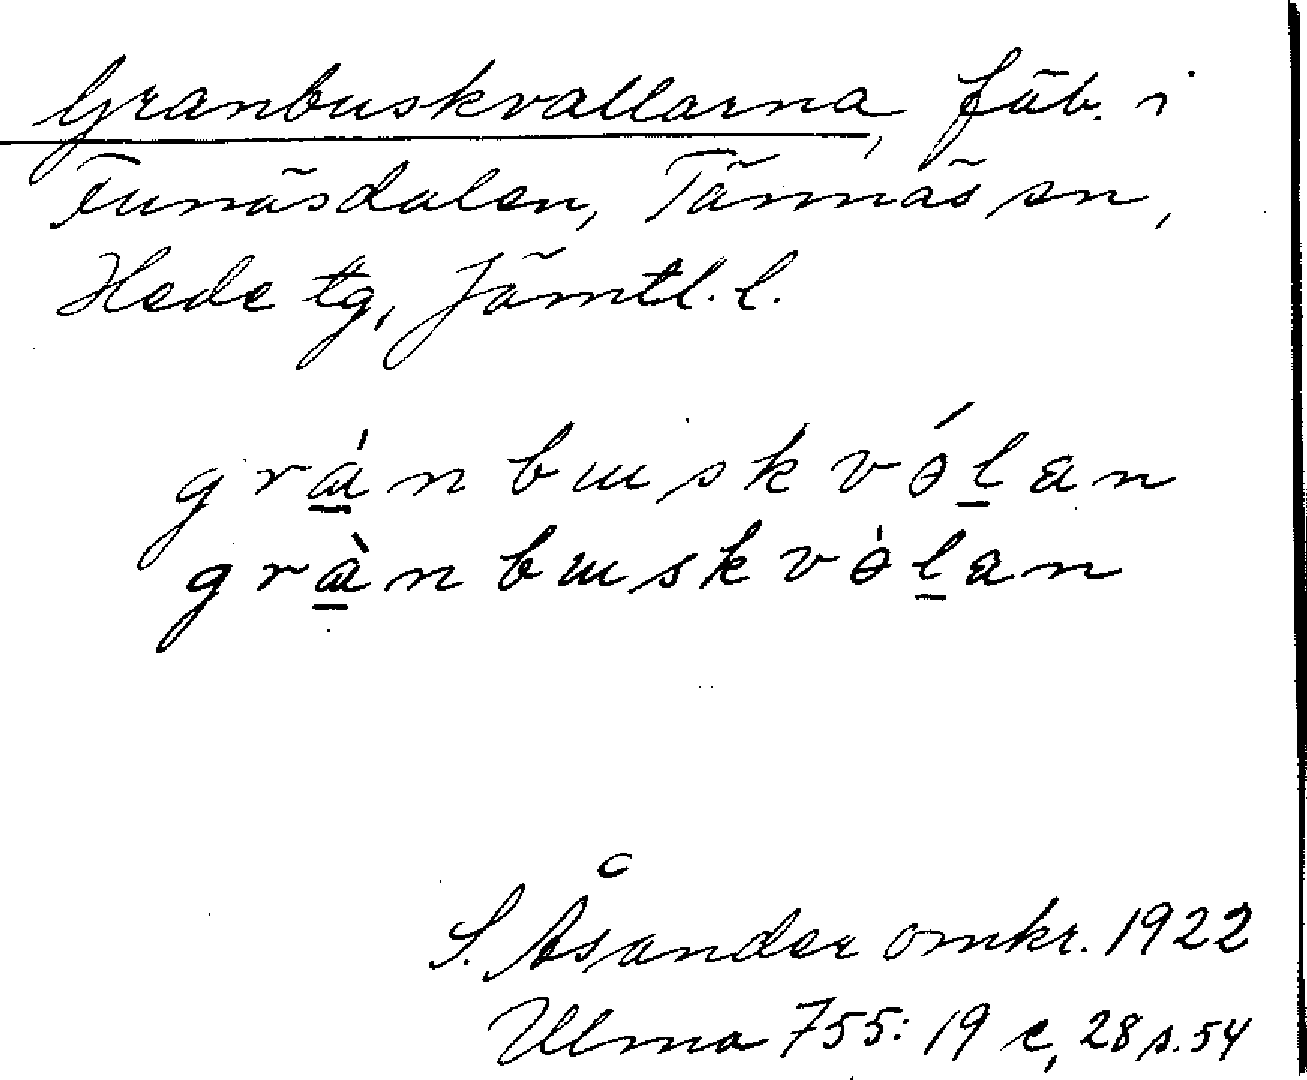 Granbuskvallarna, fäb. i
Funäsdalen, Tännäs sn,
Hede tg, Jämtl. l.
grán buskvólan
gràn buskvòlan
S. Åsander omkr. 1922
Ulma 755: 19 c, 28 s. 54